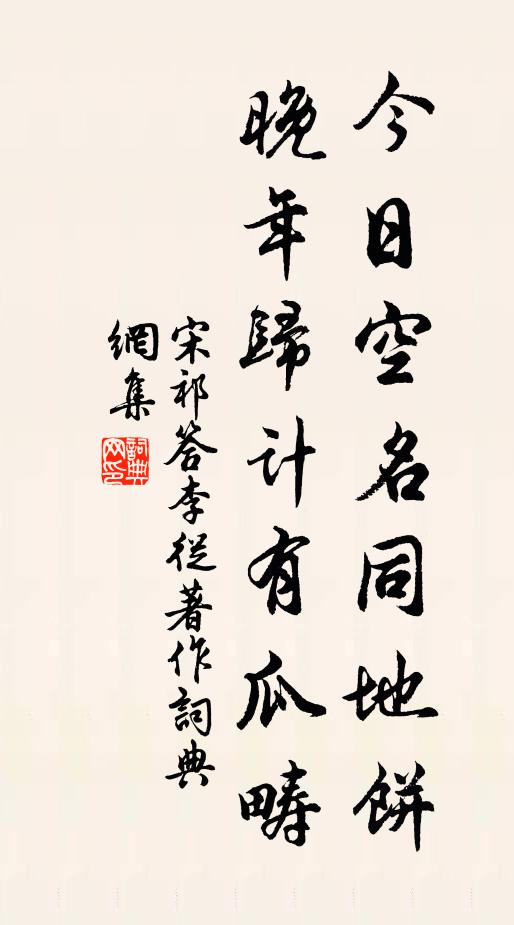 今日空名同地餅
晚年歸計有瓜疇
宋祁答李從著作詞典
網集
詞典網印